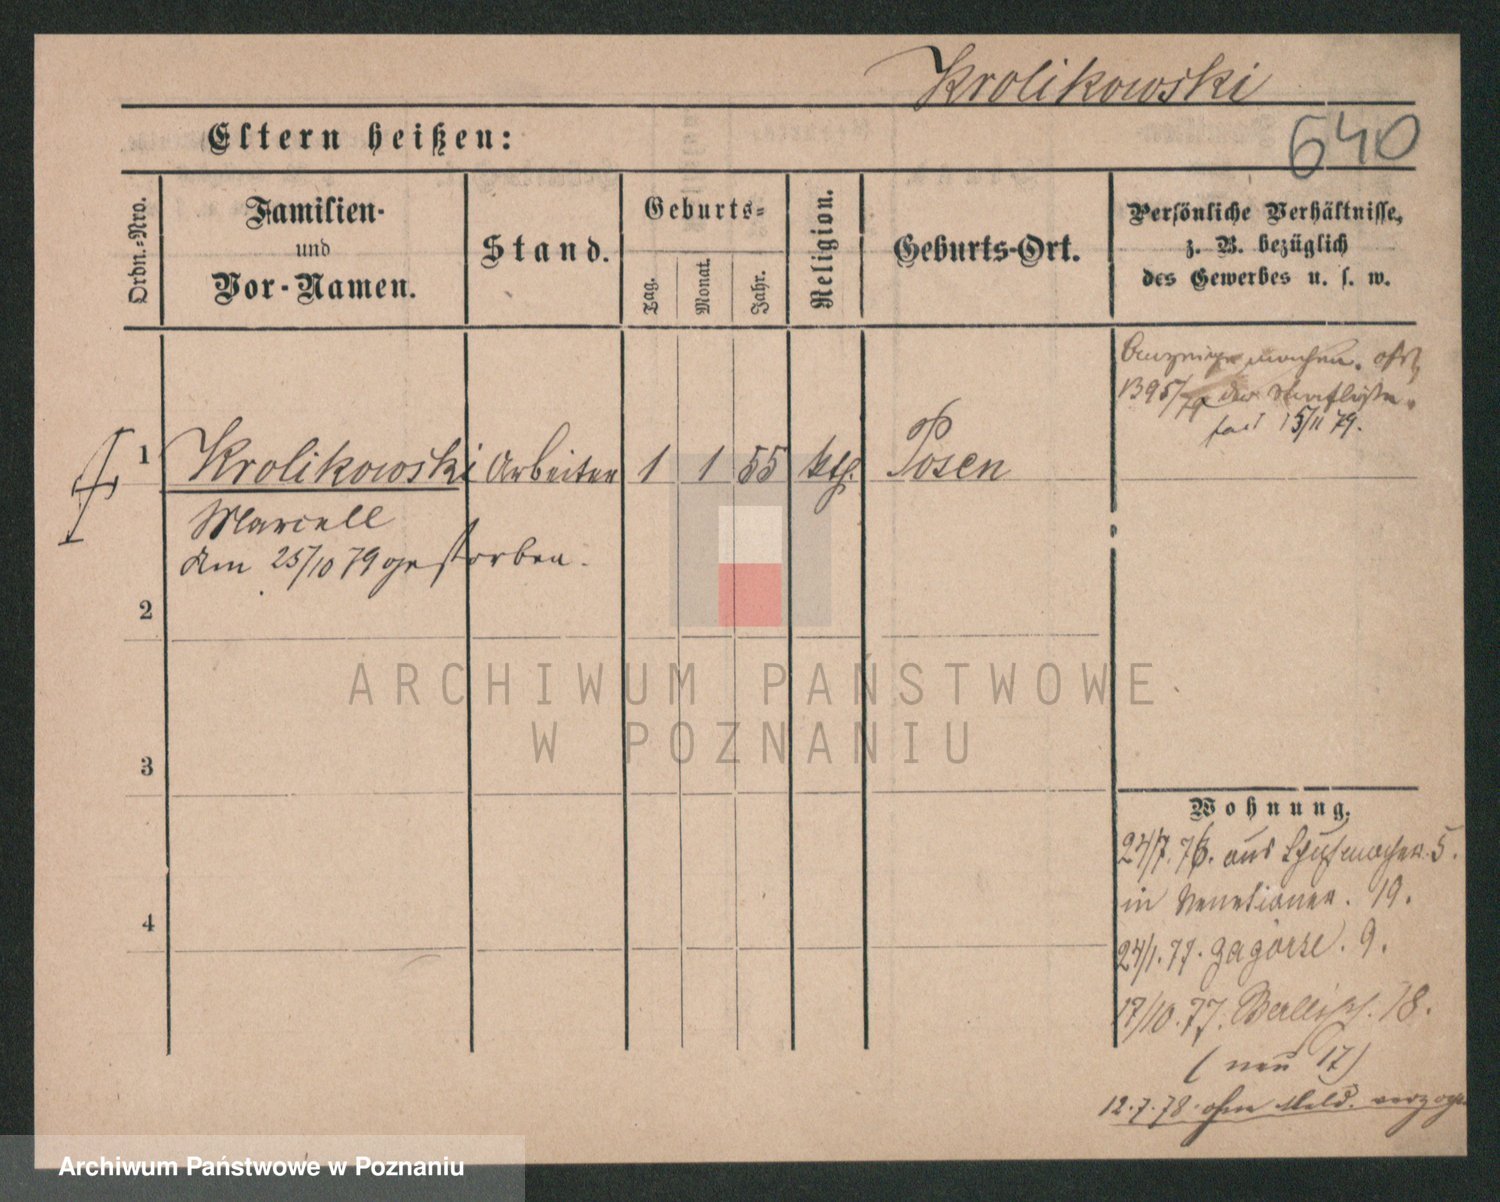 Krolikowski
640
Eltern heißen:
Ordn.=Nro.
Familien-
und
Vor-Namen.
Stand.
Geburts=
Tag.
Monat.
Jahr.
Religion.
Geburts-Ort.
Persönliche Verhältnisse,
z. B. bezüglich
des Gewerbes u. s. w.
Anzeige machen.
B 95/79 der
15/11 79.
1 Krolikowski Arbeiter 1 1 55 kth. Posen
Marcell
Am 25/10 79 gestorben.
2
3
4
ARCHIWUM PAŃSTWOWE
W POZNANIU
Wohnung.
24/7. 76. aus Schuhmacher. 5.
in Venetianer. 19.
24/1. 77. Zagorze. 9.
17/10. 77. 18.
(neu 17)
12.7.78. ohne Meld. verzogen
Archiwum Państwowe w Poznaniu